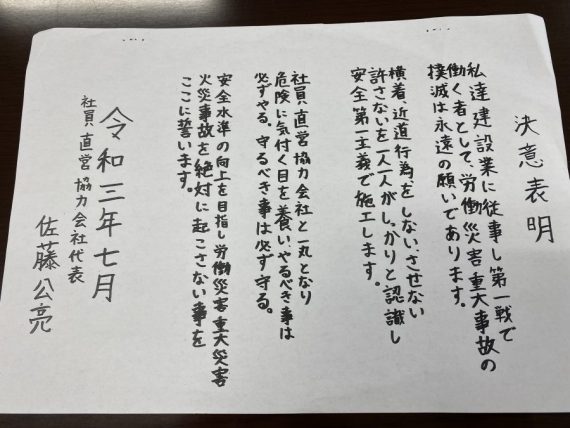 決意表明
私達建設業に従事し第一戦で
働く者として、労働災害重大事故の
撲滅は永遠の願いであります。
横着、近道行為をしない、させない
許さないを一人一人がしっかりと認識し
安全第一主義で施工します。
社員、直営協力会社と一丸となり
危険に気付く目を養い、やるべき事は
必ずやる。守るべき事は必ず守る。
安全水準の向上を目指し労働災害重大災害
火災事故を絶対に起こさない事を
ここに誓います。
令和三年七月
社員、直営協力会社代表
佐藤公亮